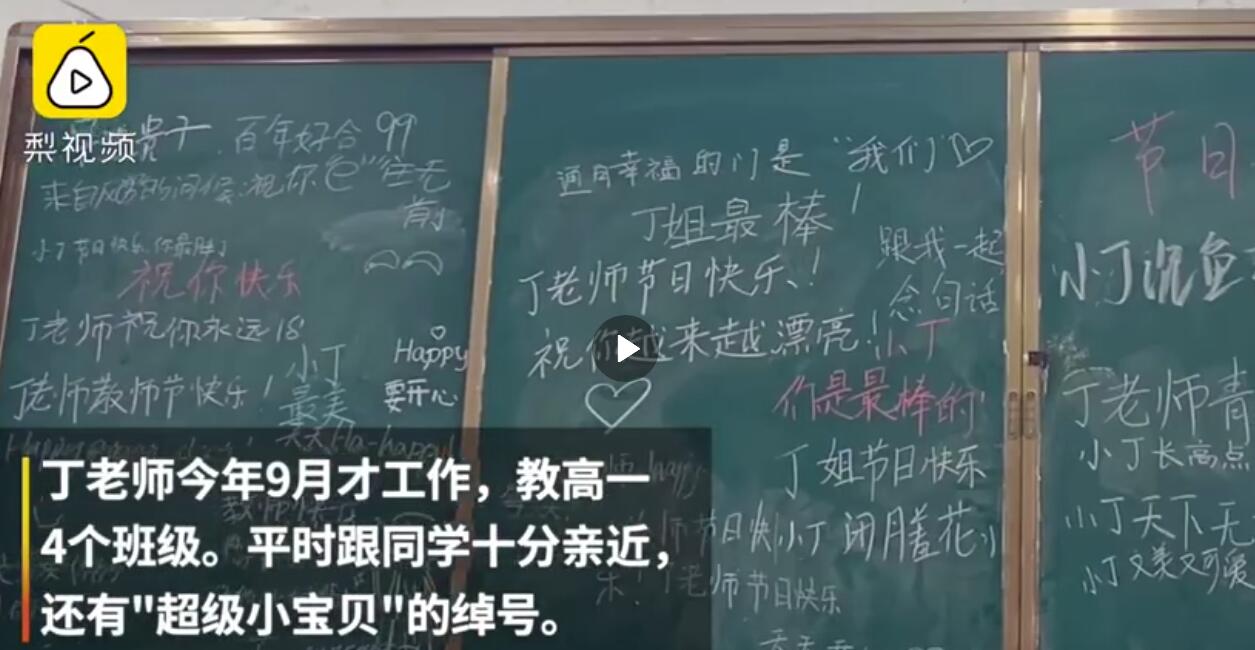 梨视频
贵子 百年好合 99
来自 的问候:祝你"色"往无
前
小丁节日快乐 你最胖了
祝你快乐
丁老师祝你永远18
小丁
最美
Happy
要开心
老师教师节快乐!
天天Ha-happy!
教师快乐
通目幸福的门是"我们"♡
丁姐最棒!
丁老师节日快乐!
祝你越来越漂亮!
跟我一起
念句话
小丁
你是最棒的!
丁姐节日快乐
happy
师节日快
乐!
小丁 闭月羞花
老师节日快乐
节日
小丁沉鱼
丁老师青
小丁长高点
小丁天下无
小丁又美又可爱
丁老师今年9月才工作，教高一
4个班级。平时跟同学十分亲近，
还有"超级小宝贝"的绰号。